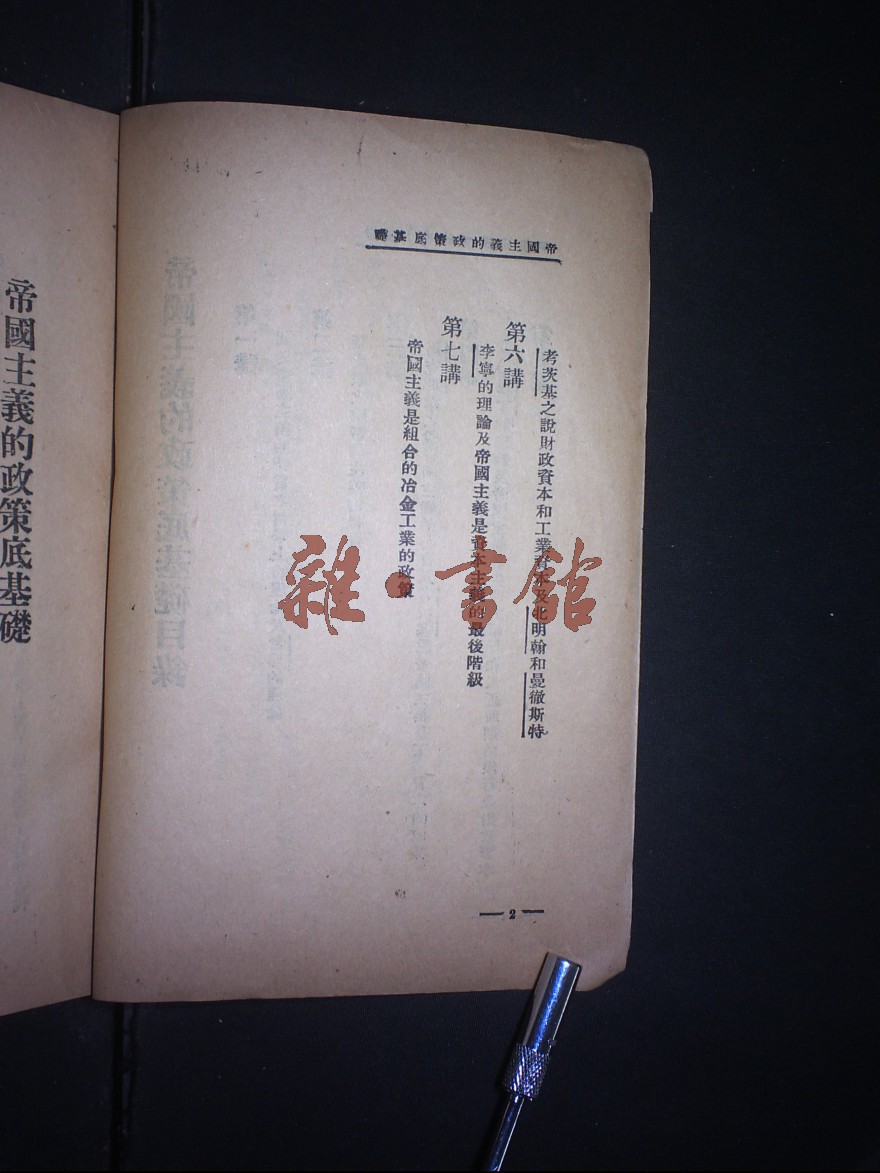 帝國主義的政策底基礎
考茨基之說財政資本和工業資本及北明翰和曼徹斯特
第六講
李寧的理論及帝國主義是資本主義的最後階級
第七講
帝國主義是組合的冶金工業的政策
— 2 —
帝國主義的政策底基礎
雜·書館